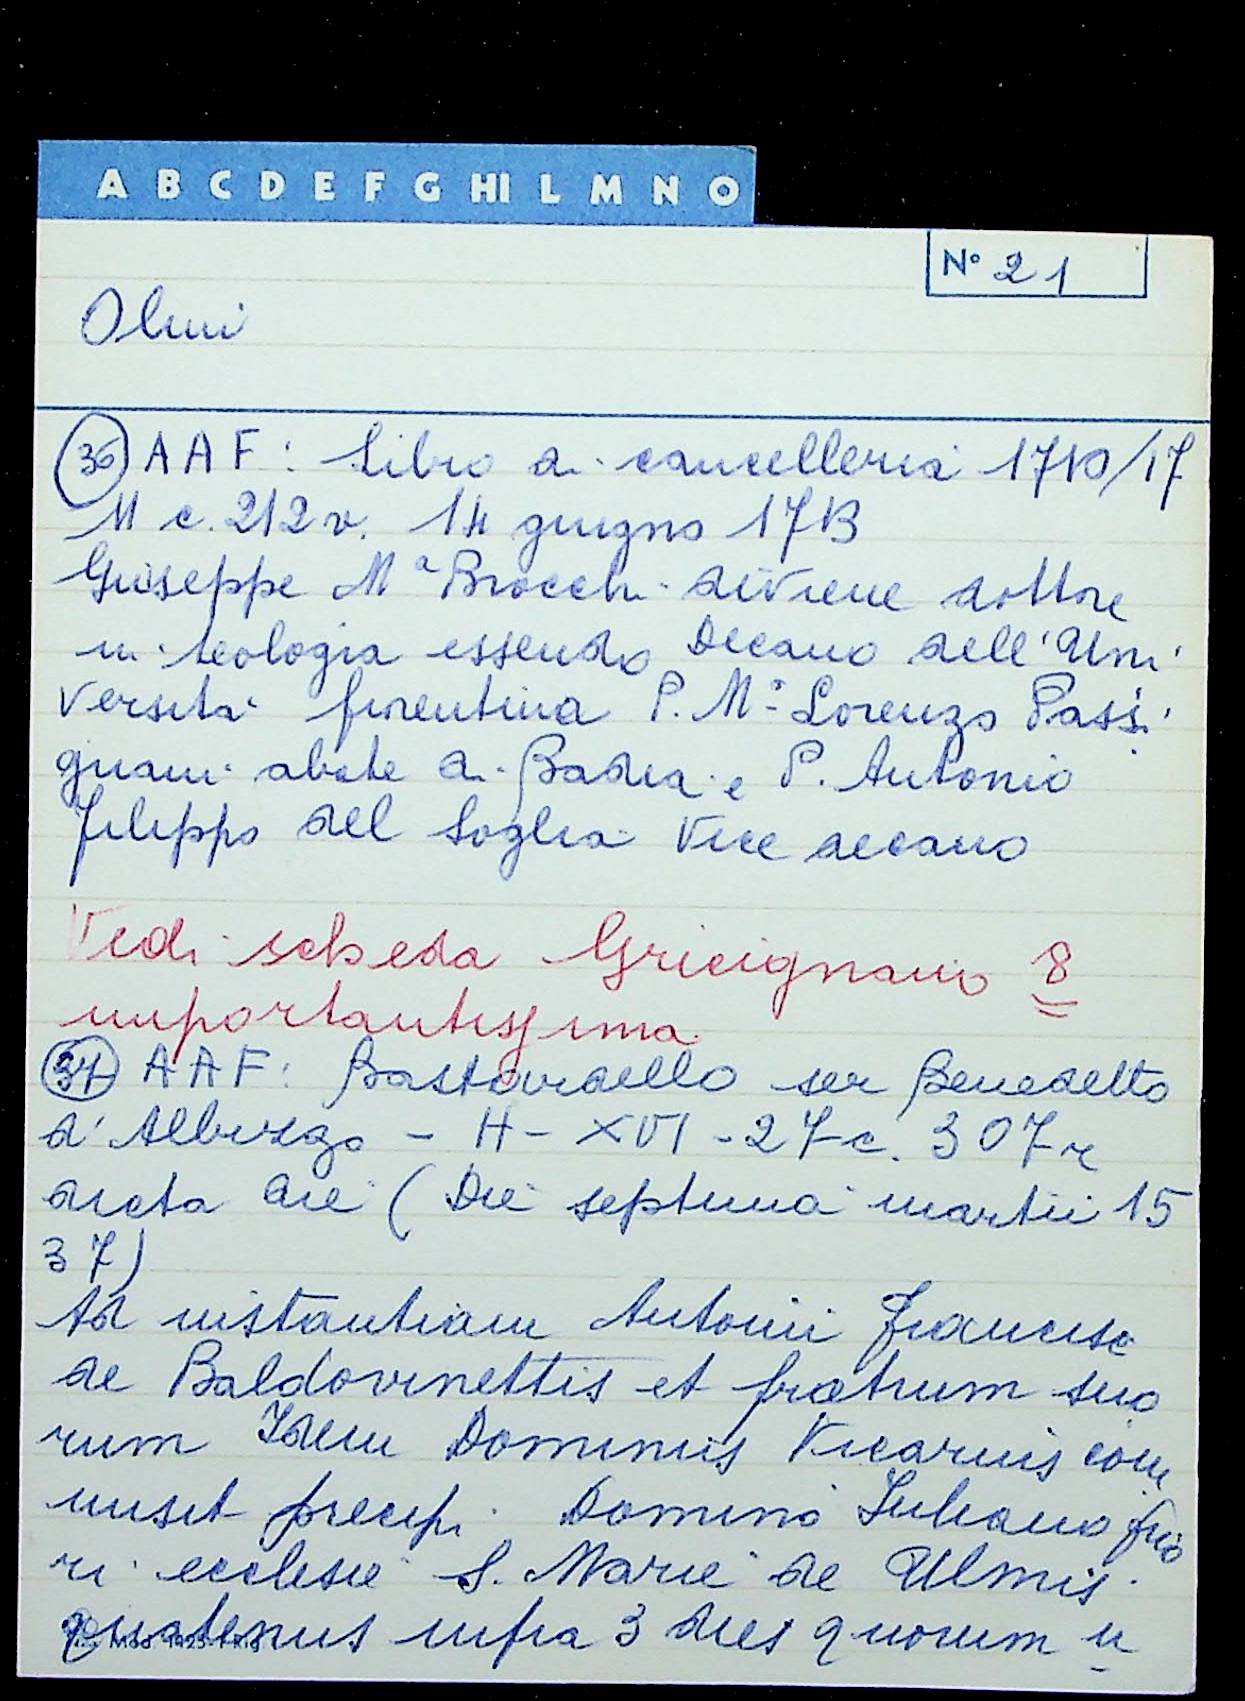 A B C D E F G HI L M N O
N° 21
Olmi
36 AAF: Libro di cancelleria 1710/17
11 c. 212v. 14 giugno 1713
Giuseppe Mª Brocchi diviene dottore
in teologia essendo Decano dell'Uni
versità fiorentina P. M° Lorenzo Passi
gnani abate di Badia e P. Antonio
Filippo del Soglia Vice decano
Vedi scheda Gricignano 8
importantissima
37 AAF: Bastardello ser Benedetto
d'Albizzo - H - XVI - 27 c. 307r
dicta die (Die septima martii 15
37)
Ad instantiam Antonii Francisc
de Baldovinettis et fratrum suo
rum Idem Dominus Vicarius com
misit precipi Domino Juliano prio
ri ecclesie S. Marie de Ulmis
quatenus infra 3 dies quorum u